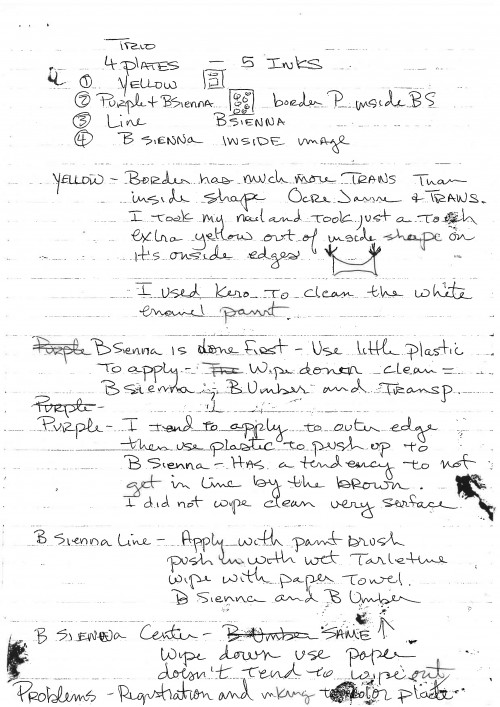 Trio
4 plates – 5 Inks
① Yellow
② Purple + BSienna border P inside BS
③ Line BSIENNA
④ B SIENNA INSIDE IMAGE
YELLOW – Border has much more TRANS Than
inside shape Ocre Jaune & TRANS.
I took my nail and took just a touch
extra yellow out of inside shape on
it's onside edges
I used Kero To clean the white
enamel paint.
Purple B Sienna is done First – Use little plastic
To apply – The Wipe down clean =
B Sienna; B Umber and Transp.
Purple –
Purple – I Tend to apply to outer edge
then use plastic to push up to
B Sienna – Has a tendency to not
get in line by the brown.
I did not wipe clean very surface
B Sienna Line – Apply with paint brush
push in with wet Tarletine
wipe with paper Towel.
B Sienna and B Umber
B SIENNA Center – B Umber SAME ↑
Wipe down use paper
doesn't Tend to wipe out
Problems – Registration and inking color plate